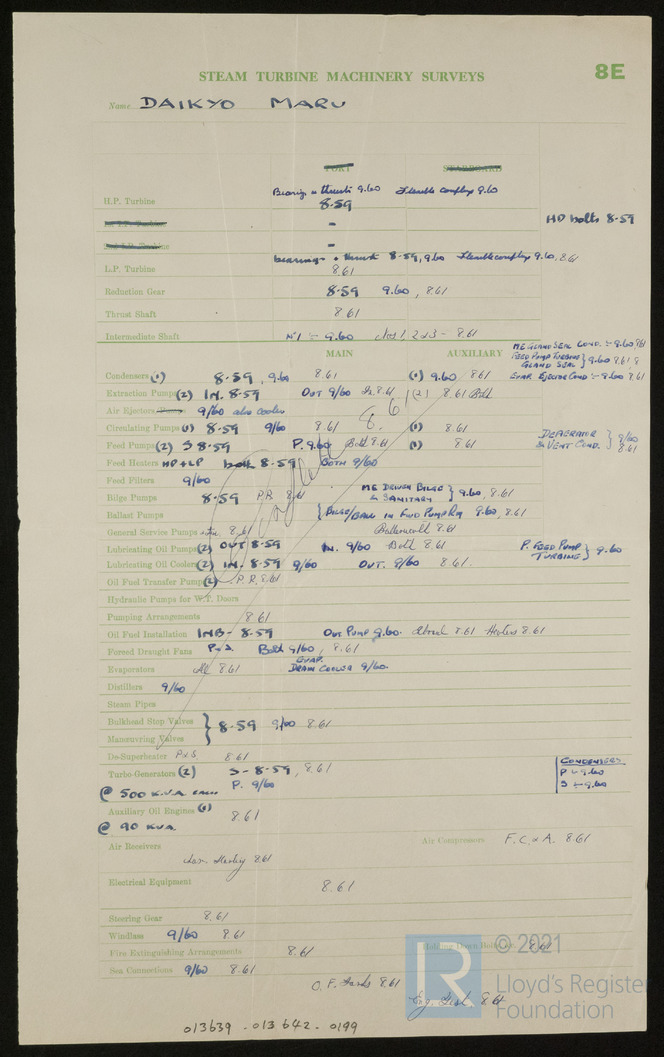 8E
STEAM TURBINE MACHINERY SURVEYS
Name DAIKYO MARU
PORT STARBOARD
Bearings & thrust 9.60 Flexible coupling 9.60
H.P. Turbine 8·59
- HD bolts 8·59
-
bearings & thrust 8·59, 9.60 Flexible coupling 9.60, 8.61
L.P. Turbine 8.61
Reduction Gear 8·59 9.60, 8.61
Thrust Shaft 8.61
Intermediate Shaft No 1 :- 9.60 Nos 1, 2 & 3 - 8.61
MAIN AUXILIARY
ME GLAND SEAL COND. :- 9.60 8.61
FEED PUMP TURBINE GLAND SEAL } 9.60 8.61
EVAP. EJECTOR COND :- 9.60 8.61
Condensers (1) 8·59, 9.60 8.61 (1) 9.60, 8.61
Extraction Pumps (2) IN. 8·59 OUT 9/60 In. 8.61 (2) 8.61 Both
Air Ejectors/Pumps 9/60 also cooler
Circulating Pumps (1) 8·59 9/60 8.61 (1) 8.61
Feed Pumps (2) S 8·59 P. 9.60 Both 8.61 (1) 8.61
DEAERATOR & VENT COND. } 9/60 8.61
Complete 8.61
Feed Heaters HP & LP both 8·59 BOTH 9/60
Feed Filters 9/60
Bilge Pumps 8·59 P.R. 8.61 ME DRIVEN BILGE & SANITARY } 9.60, 8.61
Ballast Pumps { BILGE/BALL IN FWD PUMP RM 9.60, 8.61
General Service Pumps 8.61 Butterworth 8.61
Lubricating Oil Pumps (2) OUT 8·59 IN. 9/60 Both 8.61 P. FEED PUMP TURBINE } 9.60
Lubricating Oil Coolers (2) IN. 8·59 9/60 OUT. 9/60 8.61.
Oil Fuel Transfer Pumps (2) P.R. 8.61
Hydraulic Pumps for W.T. Doors
Pumping Arrangements 8.61
Oil Fuel Installation INB- 8·59 OUT PUMP 9.60. 8.61 Heaters 8.61
Forced Draught Fans P & S Both 9/60, 8.61
Evaporators 8.61 EVAP. DRAIN COOLER 9/60.
Distillers 9/60
Steam Pipes
Bulkhead Stop Valves } 8·59 9/60 8.61
Manœuvring Valves
De-Superheater P & S. 8.61
Turbo-Generators (2) S- 8·59, 8.61
@ 500 K.V.A. EACH P. 9/60
CONDENSERS
P - 9.60
S - 9.60
Auxiliary Oil Engines (1) 8.61
@ 90 KVA.
Air Receivers Air Compressors F.C. & A. 8.61
8.61
Electrical Equipment 8.61
Steering Gear 8.61
Windlass 9/60 8.61
Holding Down Bolts 8.61
Fire Extinguishing Arrangements 8.61
Sea Connections 9/60 8.61
O.F. Tanks 8.61
8.61
© 2021
Lloyd's Register
Foundation
013639 - 013642 - 0199